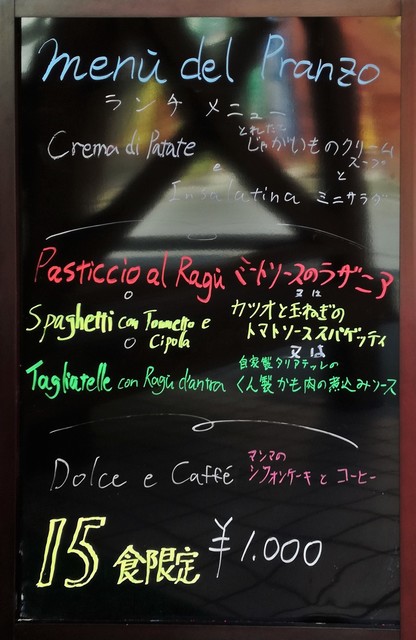 menù del Pranzo
ランチ メニュー
Crema di Patate
とれたて
じゃがいものクリーム
スープ
e
と
Insalatina ミニサラダ
Pasticcio al Ragù ミートソースのラザニア
o
又は
Spaghetti con Tonnetto e
Cipola
カツオと玉ねぎの
トマトソーススパゲッティ
o
又は
Tagliatelle con Ragù d'antra
自家製タリアテッレの
くん製かも肉の煮込みソース
Dolce e Caffé
マンマの
シフォンケーキ と コーヒー
15 食限定 ¥1.000